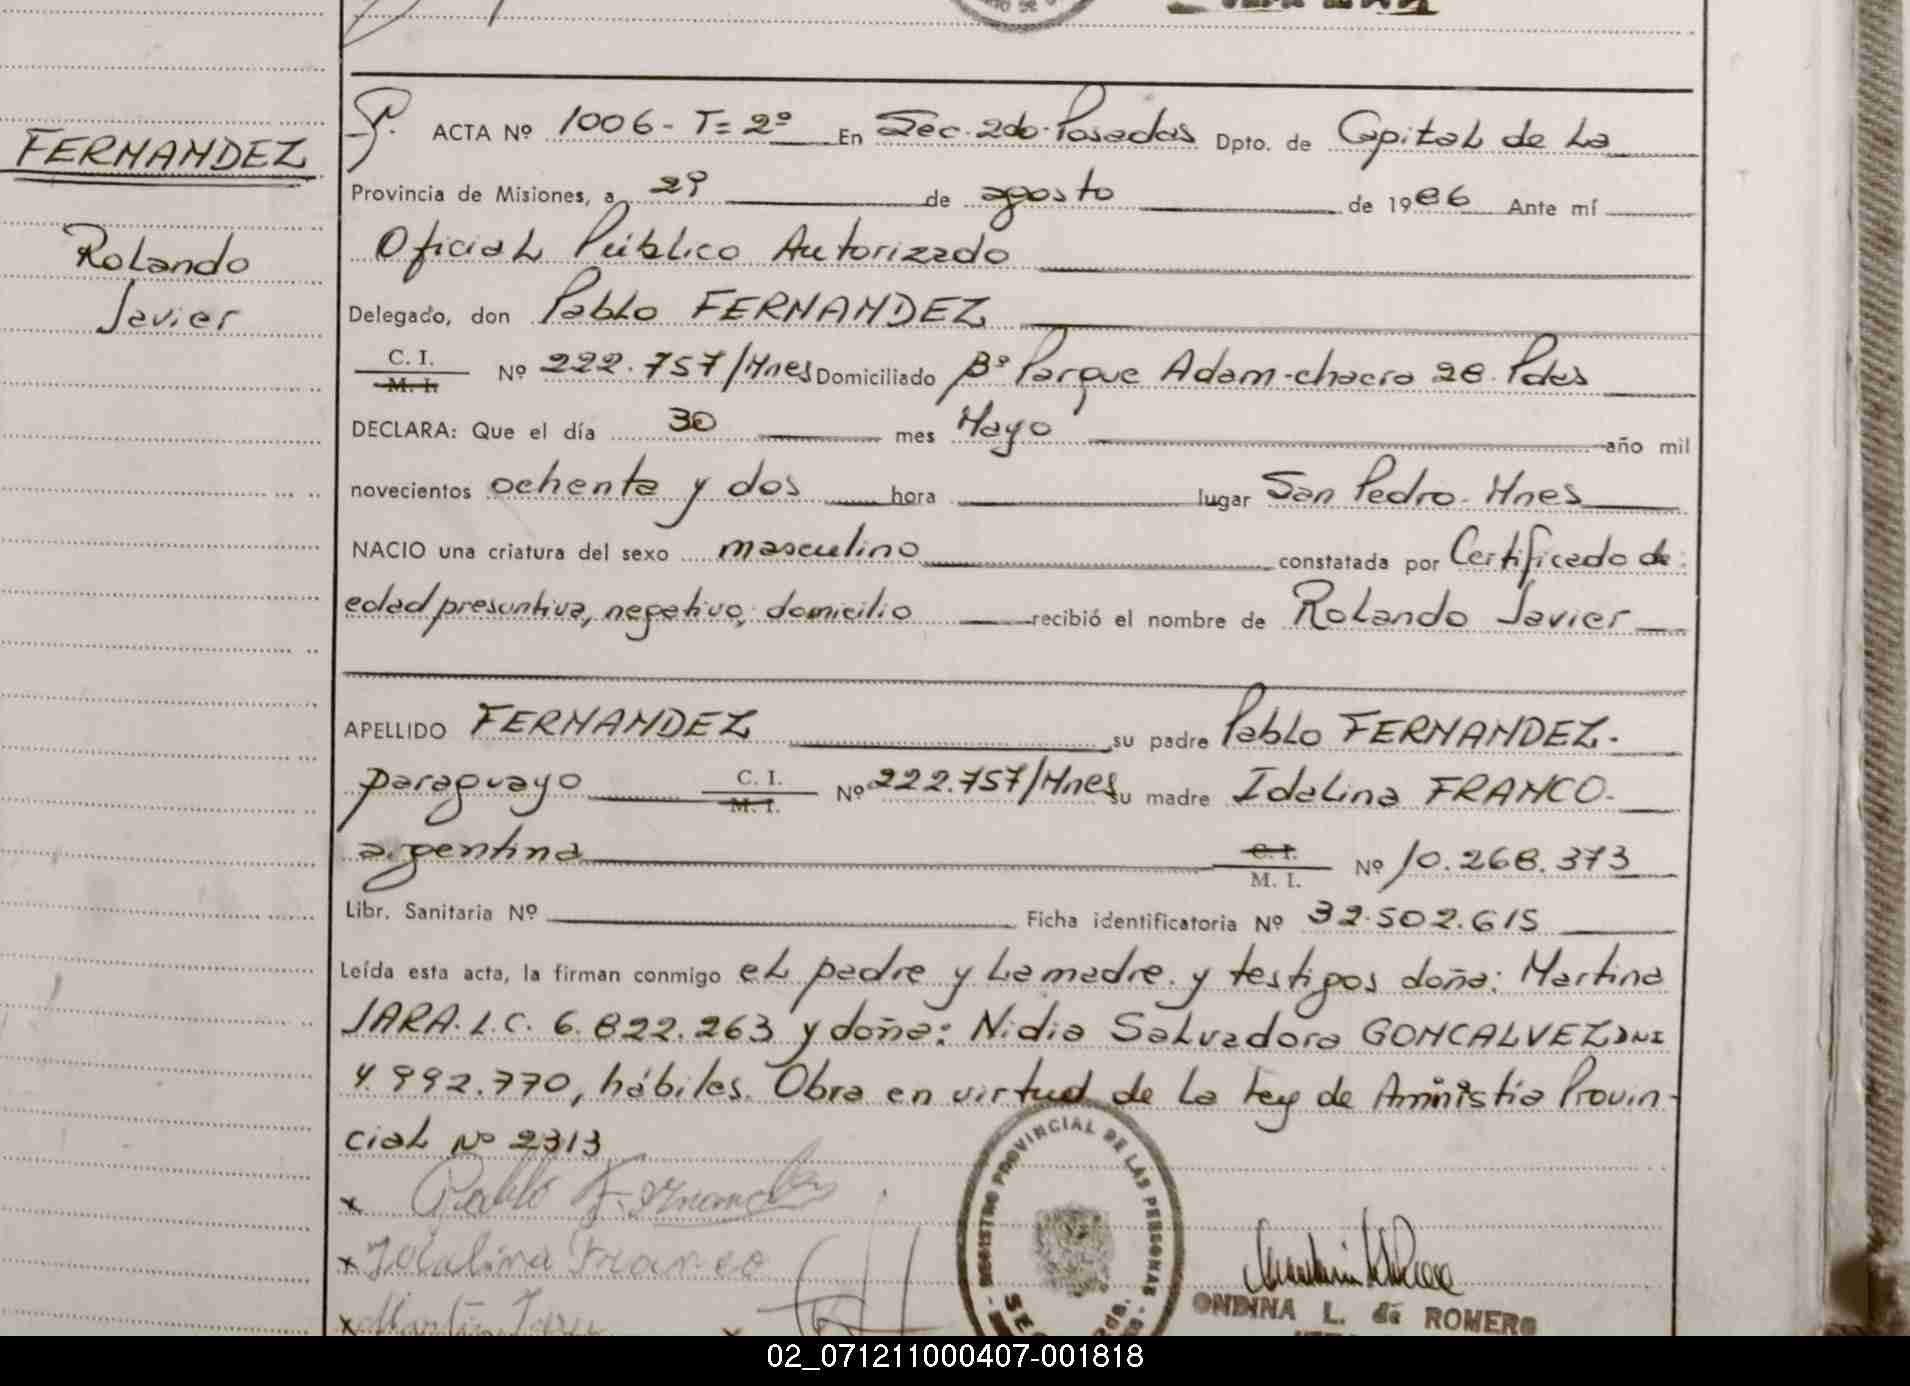 FERNANDEZ
Rolando
Javier
ACTA Nº 1006 - T= 2º En Sec. 2do. Posadas Dpto. de Capital de La
Provincia de Misiones, a 29 de agosto de 1986 Ante mí
Oficial Público Autorizado
Delegado, don Pablo FERNANDEZ
C. I. M. I. Nº 222.757/Mnes Domiciliado Bº Parque Adam-chacra 28. Pdas
DECLARA: Que el día 30 mes Mayo año mil
novecientos ochenta y dos hora lugar San Pedro - Mnes
NACIO una criatura del sexo masculino constatada por Certificado de
edad presuntiva, negativo, domicilio recibió el nombre de Rolando Javier
APELLIDO FERNANDEZ su padre Pablo FERNANDEZ.
paraguayo C. I. M. I. Nº 222.757/Mnes su madre Idalina FRANCO.
argentina C. I. M. I. Nº 10.268.373
Libr. Sanitaria Nº Ficha identificatoria Nº 32.502.615
Leída esta acta, la firman conmigo el padre y la madre. y testigos doña: Martina
JARA. L.C. 6.822.263 y doña: Nidia Salvadora GONCALVEZ DNI
4.992.770, hábiles. Obra en virtud de la ley de Amnistía Provin-
cial Nº 2313
x Pablo Fernandez
x Idalina Franco
x Martina Jara
x
REGISTRO PROVINCIAL DE LAS PERSONAS
ONDINA L. de ROMERO
02_071211000407-001818